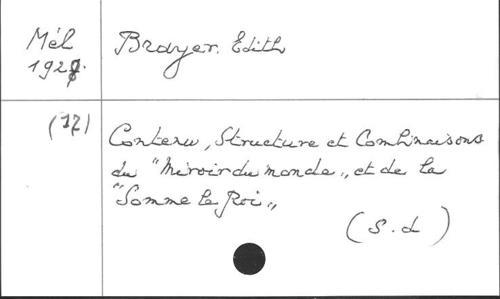 Mél
Brayer. Edith
192
(17)
Contenu, Structure et Combinaisons
du "Miroir du monde" et de la
"Somme le Roi"
(S.d)